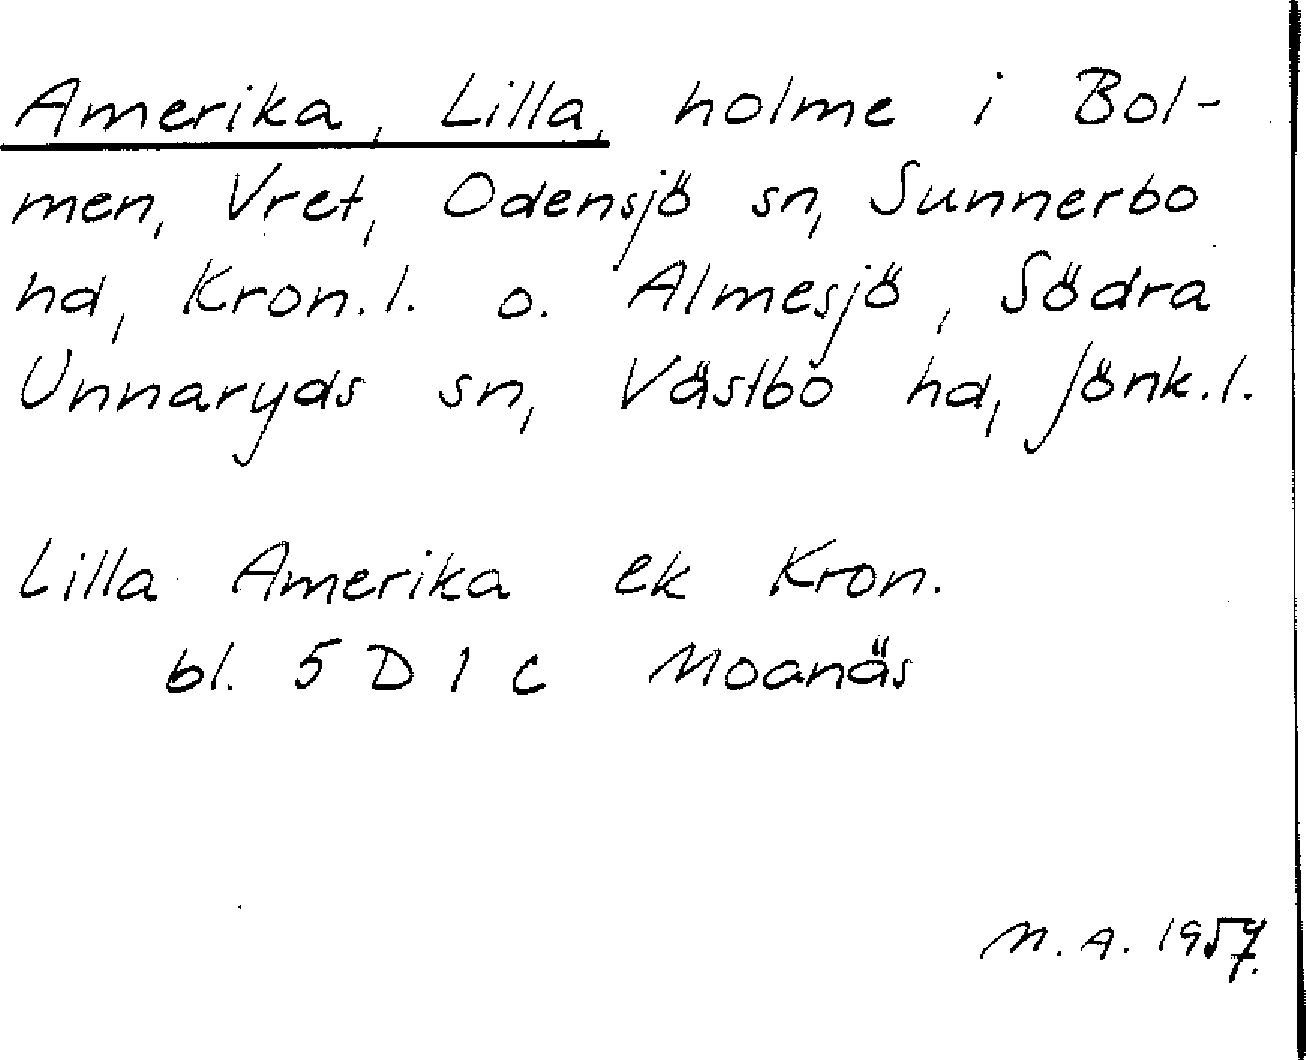 Amerika, Lilla, holme i Bol-
men, Vret, Odensjö sn, Sunnerbo
hd, Kron.l. o. Almesjö, Södra
Unnaryds sn, Västbo hd, Jönk.l.
Lilla Amerika ek Kron.
bl. 5 D 1 c Moanäs
M.A. 1957.